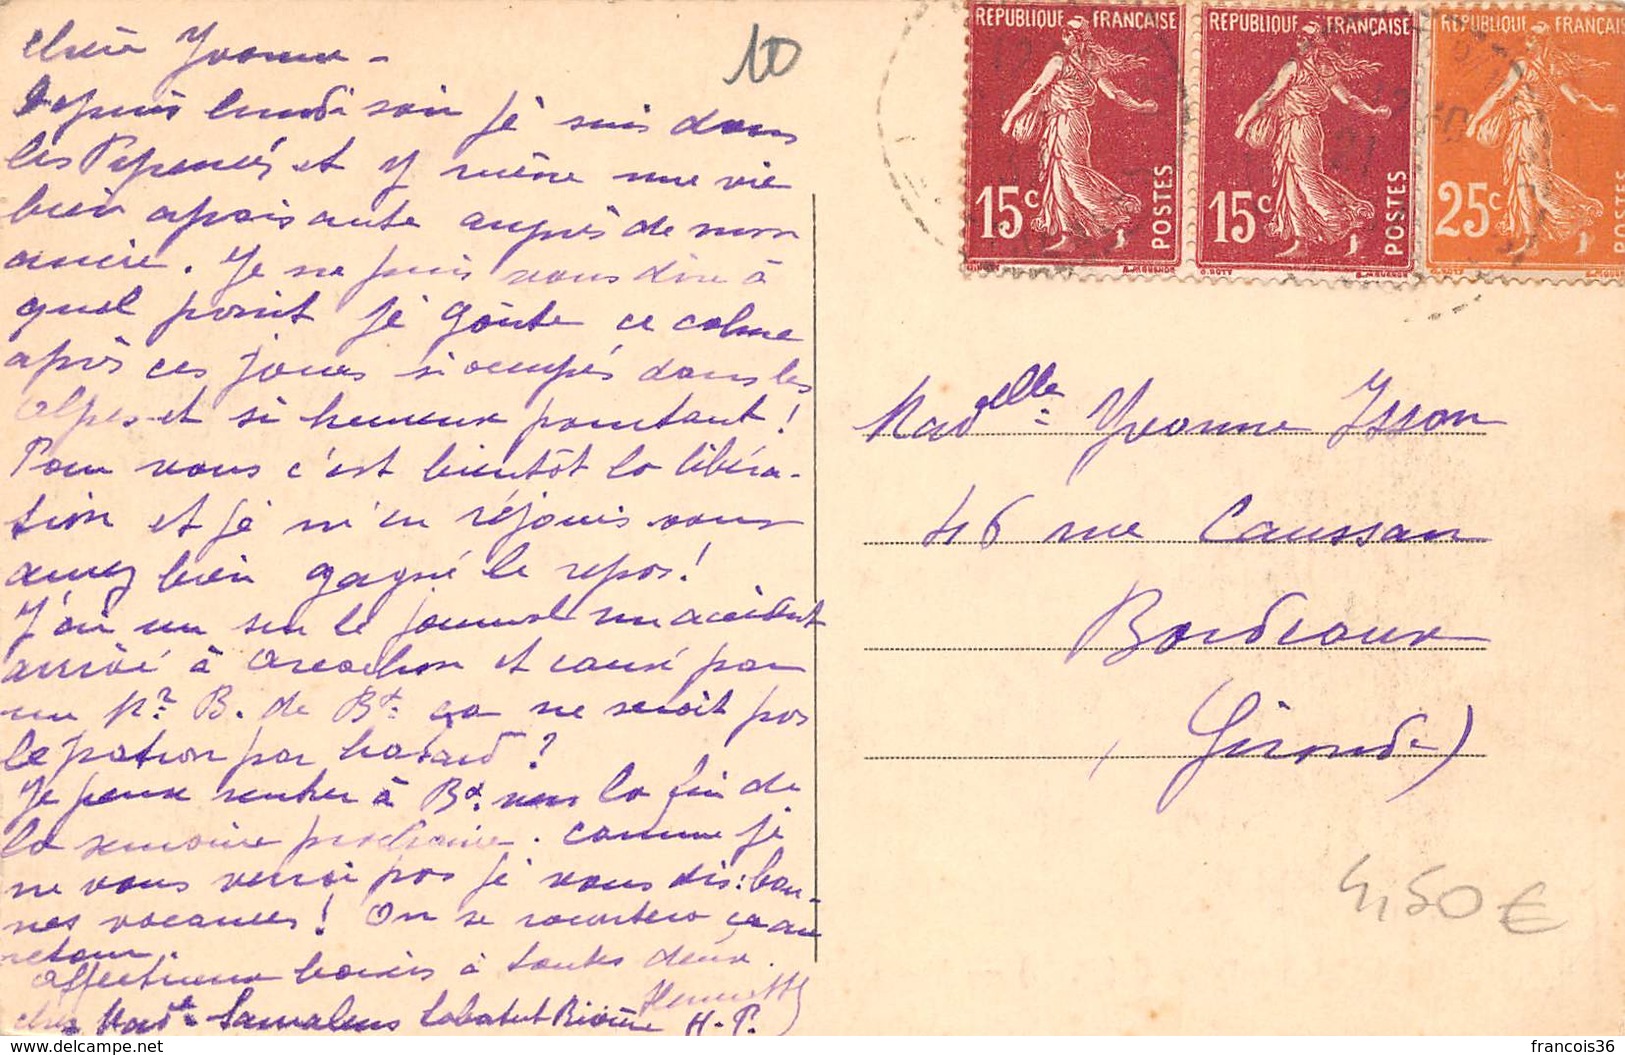 Chère Yvonne -
Depuis lundi soir je suis dans
les Pyrenées et y mène une vie
bien apaisante auprès de mon
amie. Je ne puis vous dire à
quel point je goûte ce calme
après ces jours si occupés dans les
Alpes et si heureux pourtant !
Pour vous c'est bientôt la libéra-
tion et je m'en réjouis vous
avez bien gagné le repos !
J'ai vu sur le journal un accident
arrivé à Arcachon et causé par
un Mr B. de Bx ça ne serait pas
le patron par hasard ?
Je pense rentrer à Bx vers la fin de
la semaine prochaine. Comme je
ne vous verrai pas je vous dis : bon-
nes vacances ! On se racontera ça au
retour.
Affectueux baisers à toutes deux.
Henriette
chez Mad. Samalens Labatut Rivière H.-P.
10
REPUBLIQUE FRANÇAISE
15c POSTES
REPUBLIQUE FRANÇAISE
15c POSTES
REPUBLIQUE FRANÇAISE
25c POSTES
Madelle Yvonne Isson
46 rue Caussan
Bordeaux
(Gironde)
4,50€
www.delcampe.net
francois36